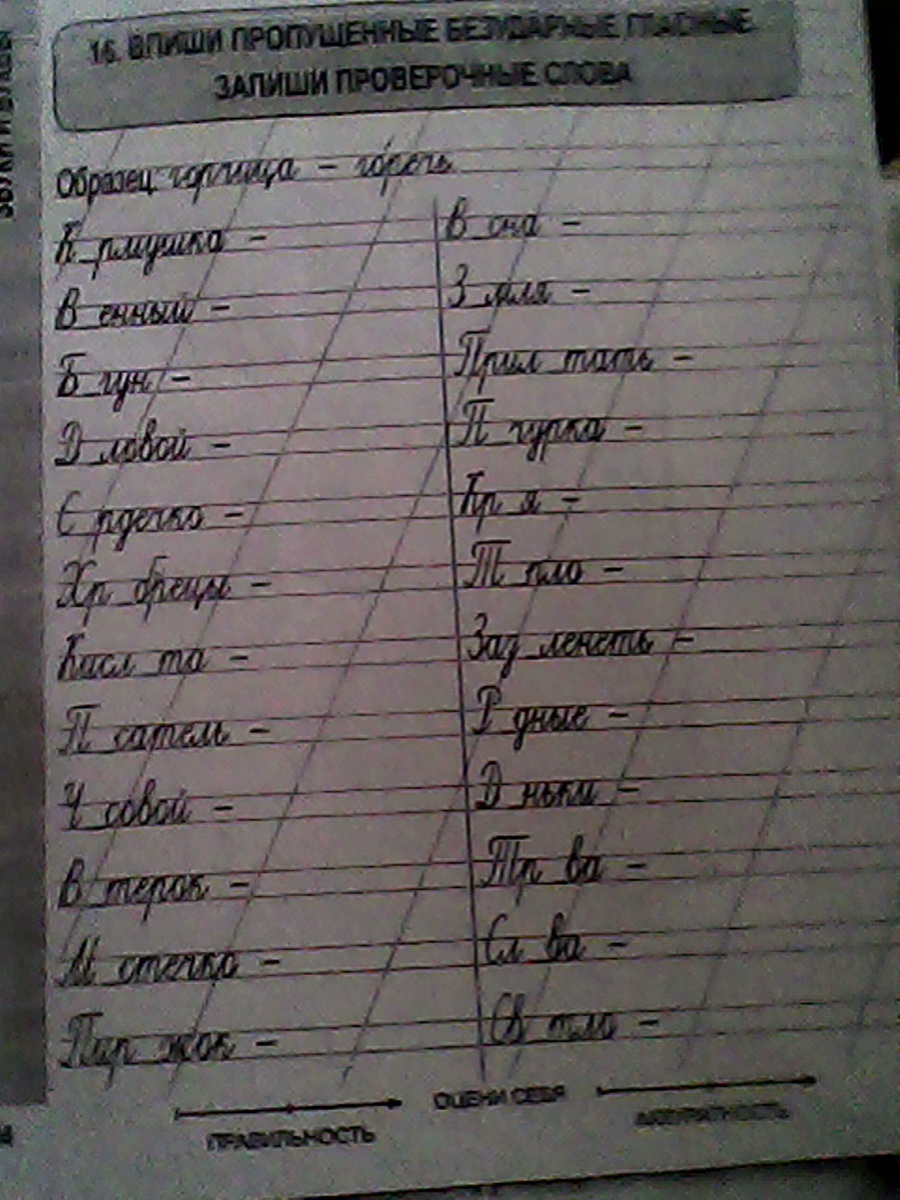 16. ВПИШИ ПРОПУЩЕННЫЕ БЕЗУДАРНЫЕ ГЛАСНЫЕ.
ЗАПИШИ ПРОВЕРОЧНЫЕ СЛОВА
Образец: горчица – го́речь.
К_рмушка –
В_енный –
Б_гун –
Д_ловой –
С_рдечко –
Хр_брецы –
Кисл_та –
П_сатель –
Ч_совой –
В_терок –
М_стечко –
Пир_жок –
В_сна –
З_мля –
Прил_тать –
П_чурка –
Кр_я –
Т_пло –
Зад_лжнсть –
Р_дные –
Д_ньки –
Тр_ва –
Сл_ва –
Св_тло –
ОЦЕНИ СЕБЯ
ПРАВИЛЬНОСТЬ
АККУРАТНОСТЬ